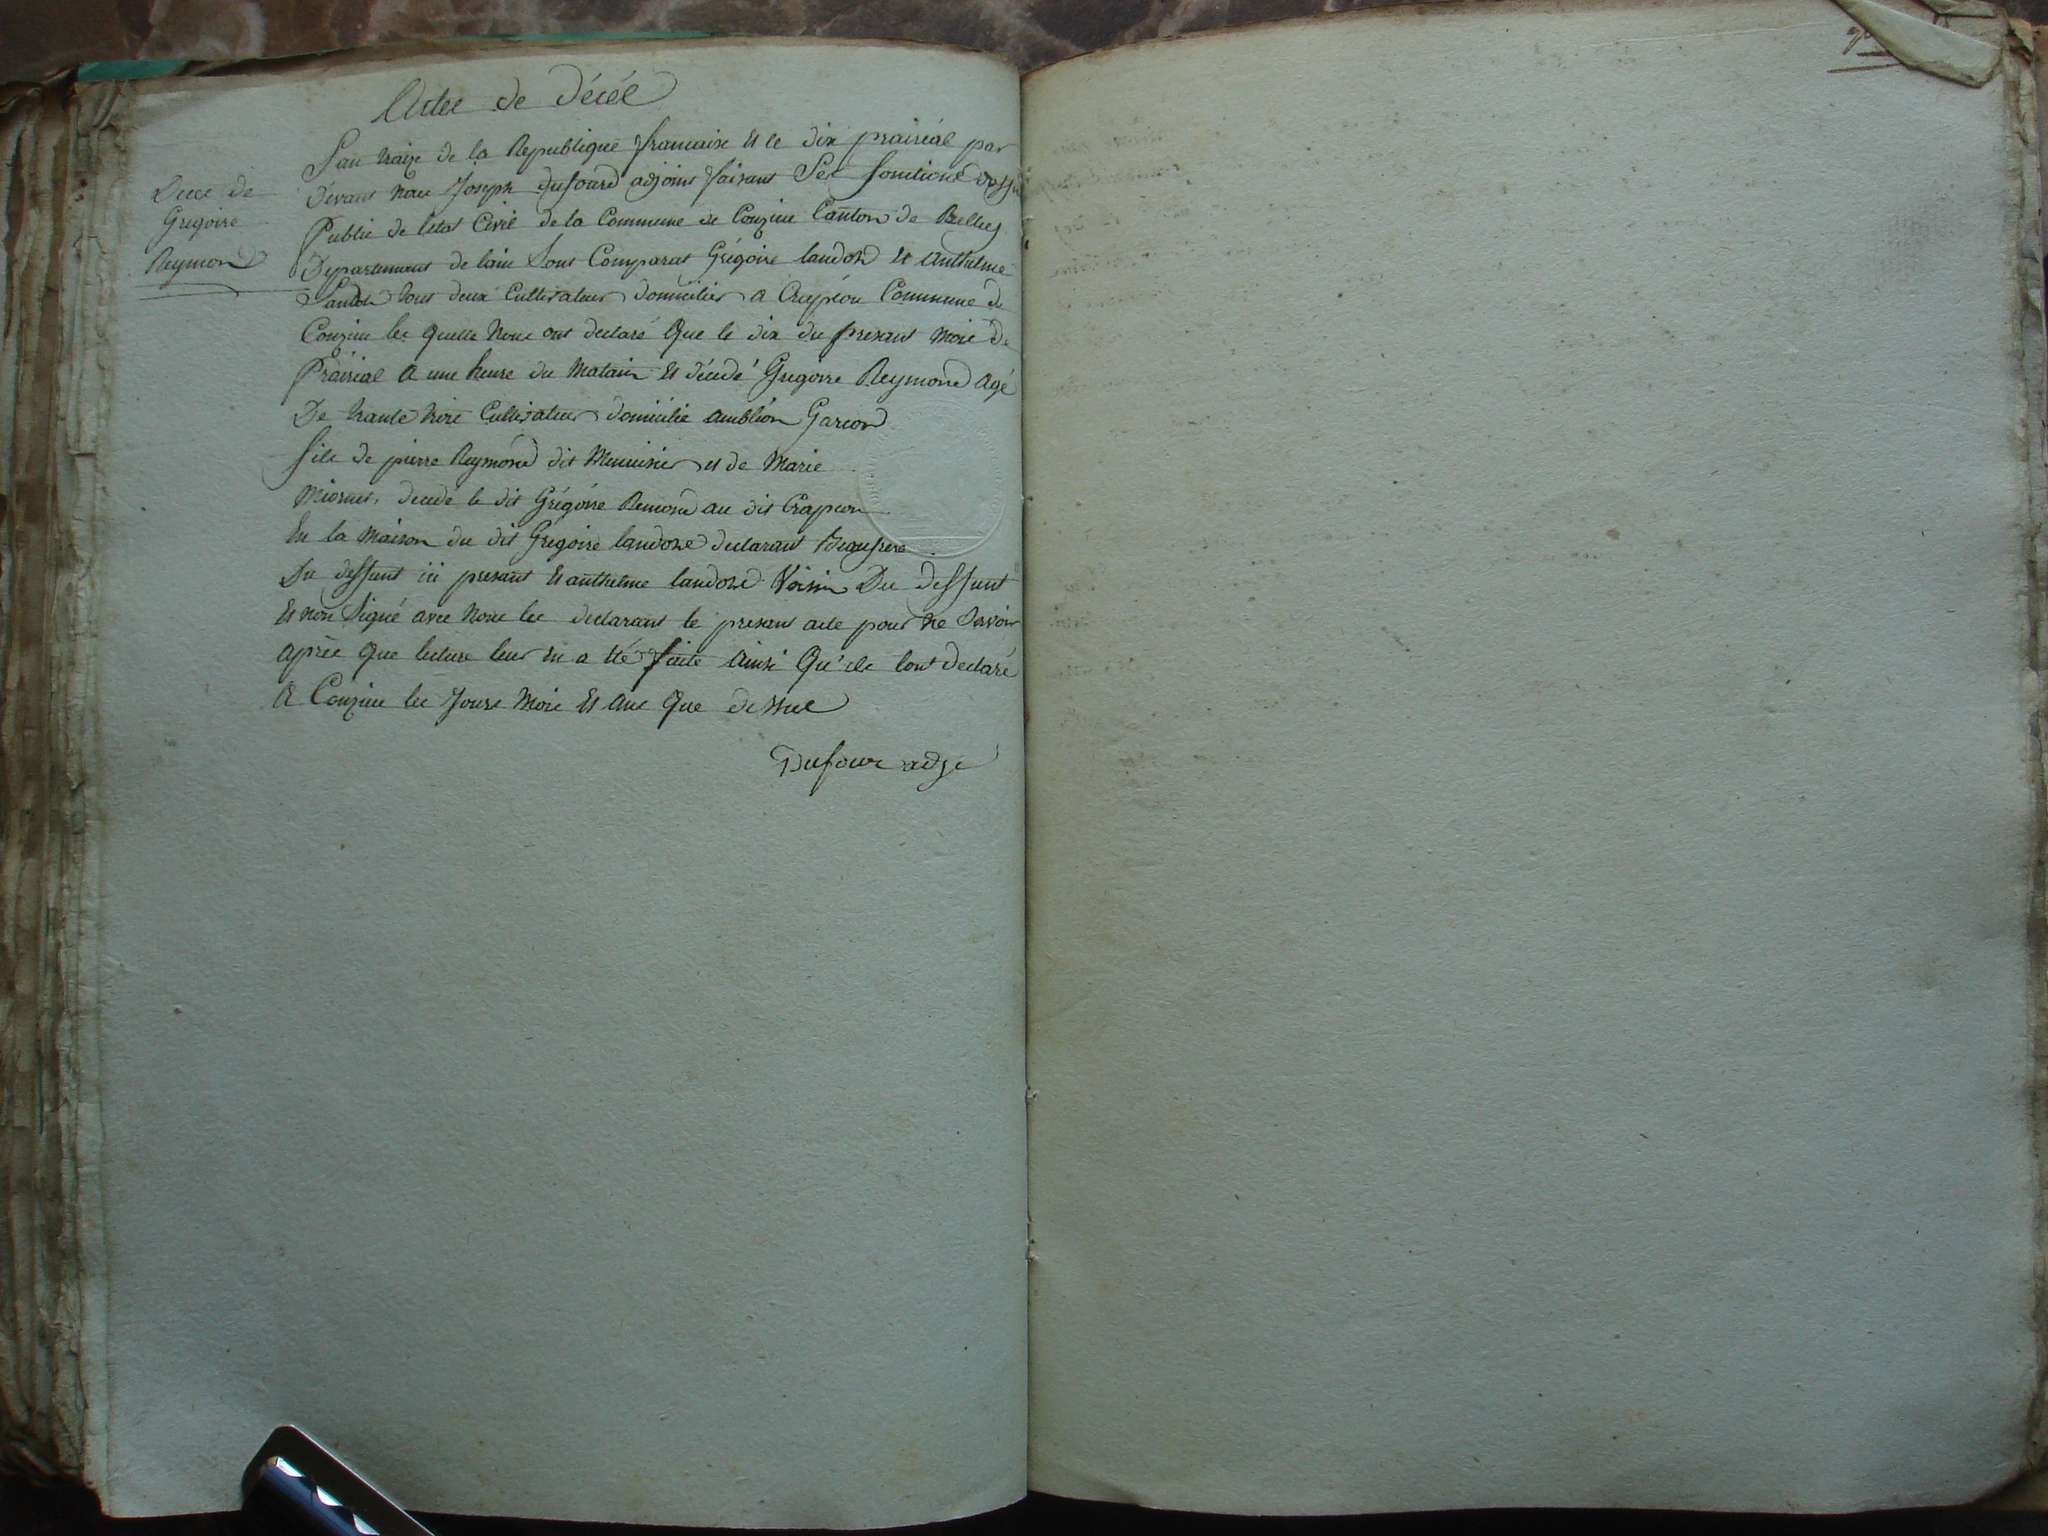 Actes de Décés
Lan traize de la Republique francaise et le dix prairéal par
Devant nous Joseph dufourd adjoint faisant Ses fonctions
Public de letat Civil de la Commune de Conzieu Canton de Belley
Departement de lain Sont Comparat Grégoire landoz et Anthelme
Landoz tous deux Cultivateur domicilier a Crapéou Commune de
Conzieu les quelle Nous ont declaré Que le dix du presant mois de
Prairial a une heure du Matain Et décédé Gregoire Reymond Agé
De trante trois Cultivateur domicilie Garcon
fils de pierre Reymond dit Menuisier et de Marie
decede le dit Grégoire Remond au dit Crapeou
En la Maison du dit Gregoire landoz declarant Beaufrere
Du deffunt ici presant Et anthelme landoz Voisin Du deffunt
Et non Signé avec Nous les declarant le presant acte pour ne Savoir
après Que lecture leur en a été faite Ainsi Qu'ils lont declaré
A Conzieu les Jours Mois Et Ans Que dessus
Dufour adje
Deces de
Gregoire
Reymond